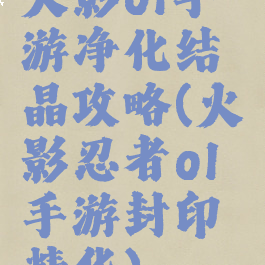 火影ol手
游净化结
晶攻略(火
影忍者ol
手游封印